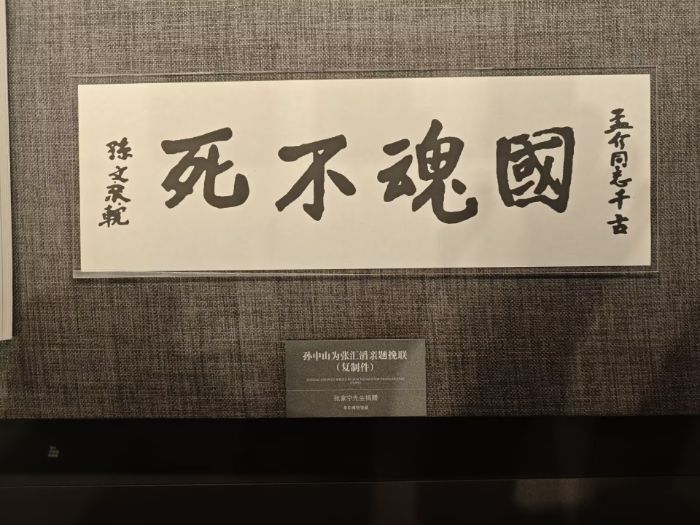 孟介同志千古
國魂不死
孫文哀輓
孙中山为张汇滔亲题挽联
（复制件）
张家宁先生捐赠